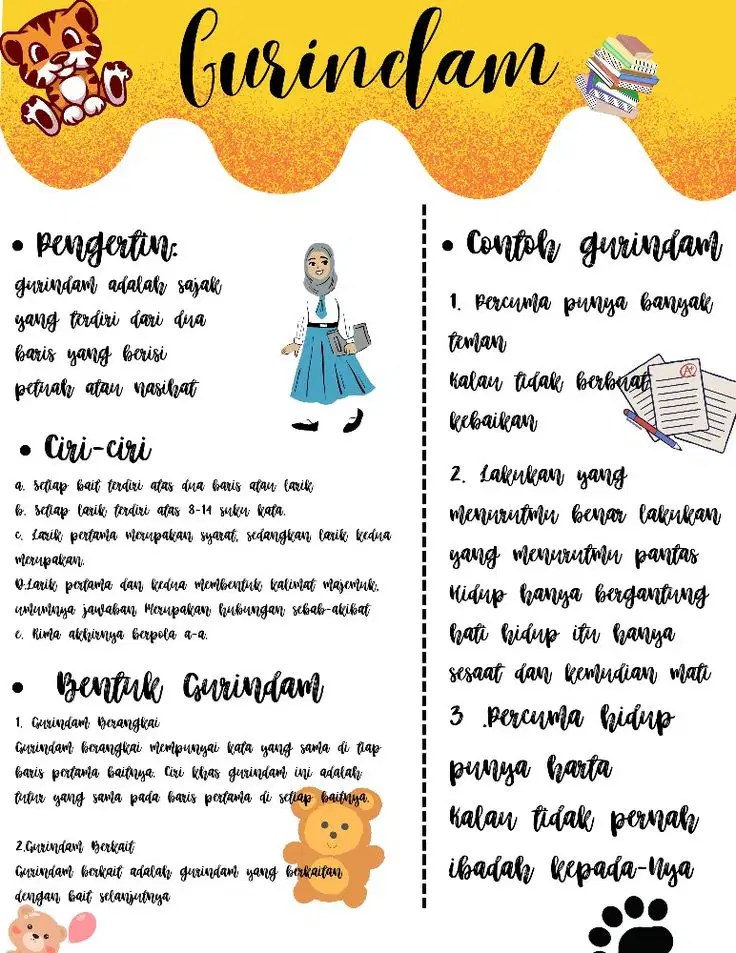 Gurindam
• Pengertin:
gurindam adalah sajak
yang terdiri dari dua
baris yang berisi
petuah atau nasihat
• Ciri-ciri
a. Setiap bait terdiri atas dua baris atau larik
b. Setiap larik terdiri atas 8-14 suku kata.
c. Larik pertama merupakan syarat, sedangkan larik kedua
merupakan.
D.Larik pertama dan kedua membentuk kalimat majemuk,
umumnya jawaban Merupakan hubungan sebab-akibat
e. Rima akhirnya berpola a-a.
• Bentuk Gurindam
1. Gurindam Berangkai
Gurindam berangkai mempunyai kata yang sama di tiap
baris pertama baitnya. Ciri khas gurindam ini adalah
tutur yang sama pada baris pertama di setiap baitnya.
2.Gurindam Berkait
Gurindam berkait adalah gurindam yang berkaitan
dengan bait selanjutnya
• Contoh gurindam
1. Percuma punya banyak
teman
Kalau tidak berbuat
kebaikan
A+
2. Lakukan yang
menurutmu benar lakukan
yang menurutmu pantas
Hidup hanya bergantung
hati hidup itu hanya
sesaat dan kemudian mati
3 .Percuma hidup
punya harta
Kalau tidak pernah
ibadah kepada-Nya